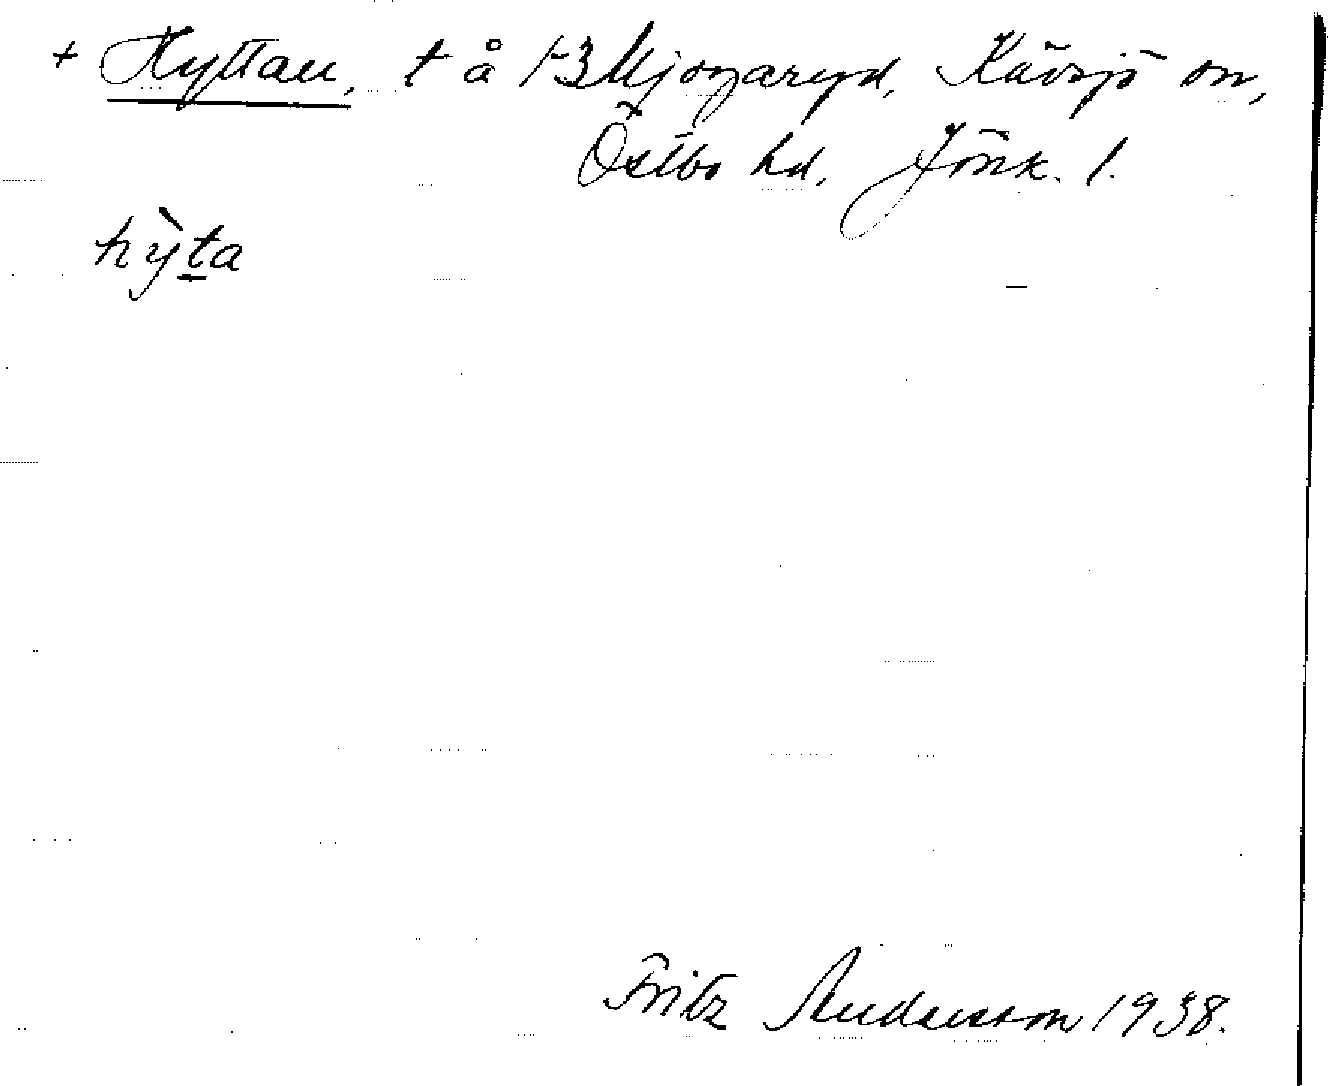 + Hyttan, t å 1-3 Mjogaryd, Kävsjö sn,
Östbo hd, Jönk. l.
hy̌ta
Fritz Andersson 1938.